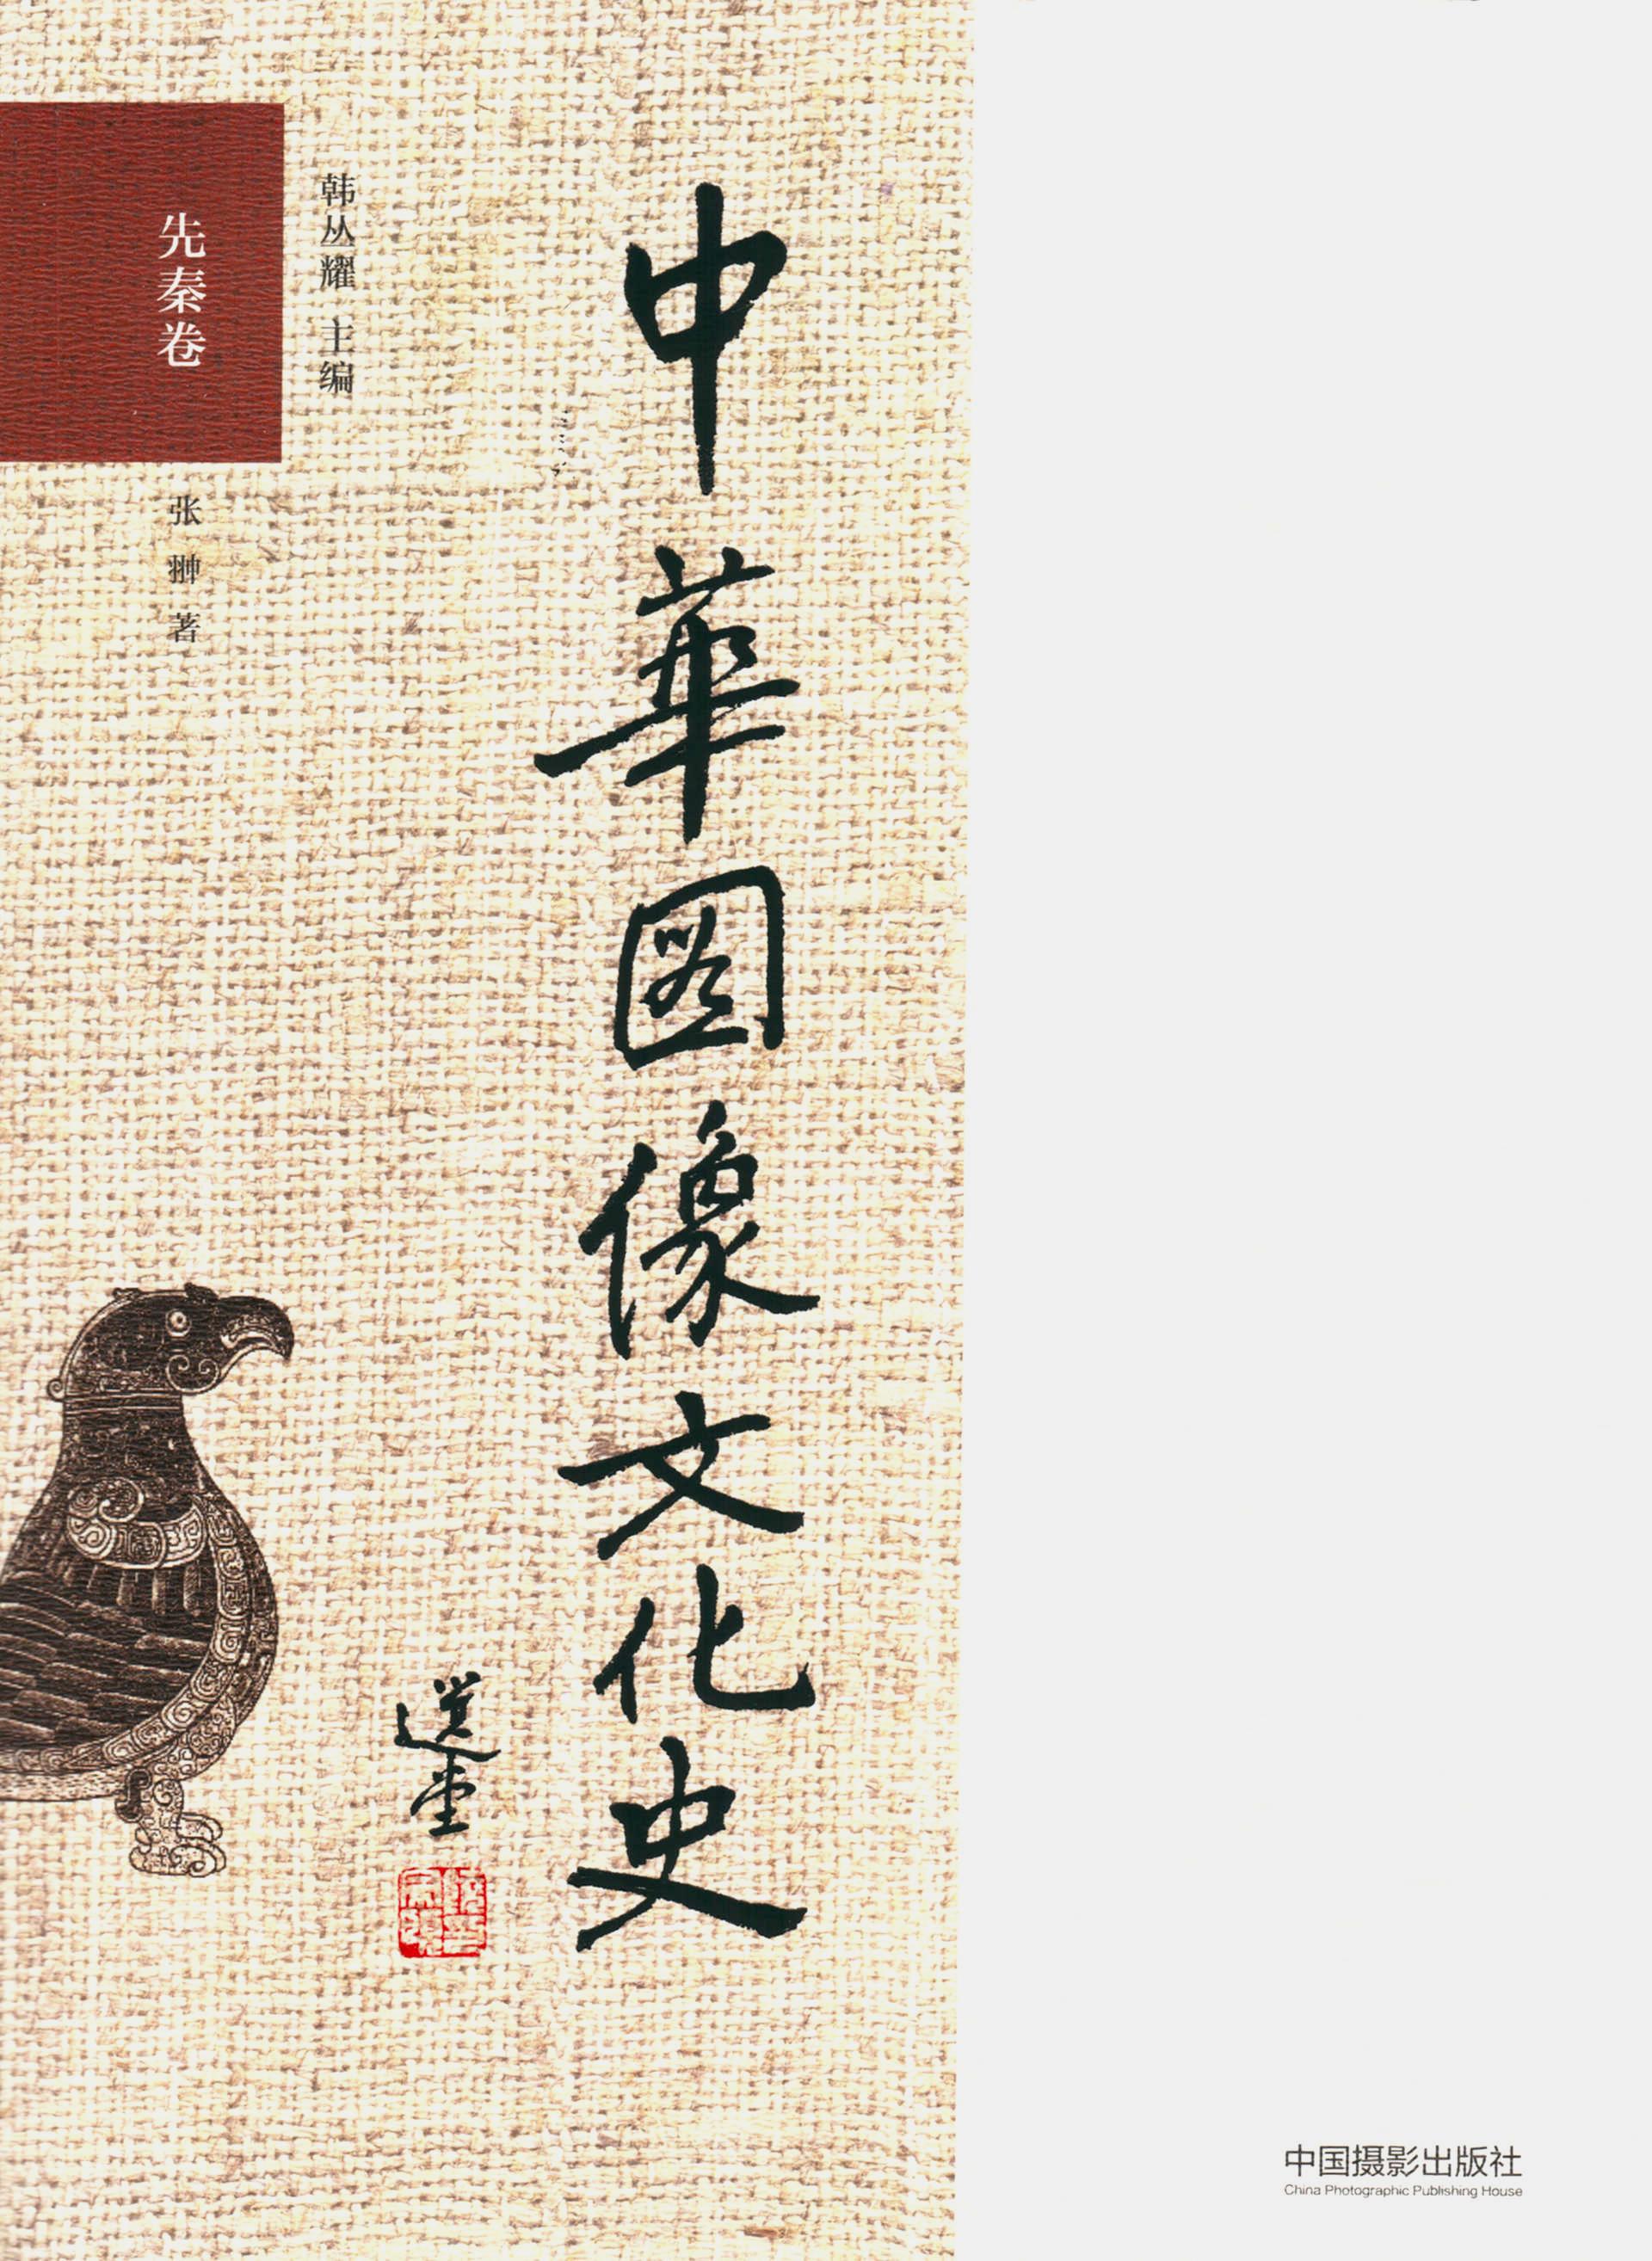 中華图像文化史
選堂
韩丛耀 主编
先秦卷
张翀 著
中国摄影出版社
China Photographic Publishing House